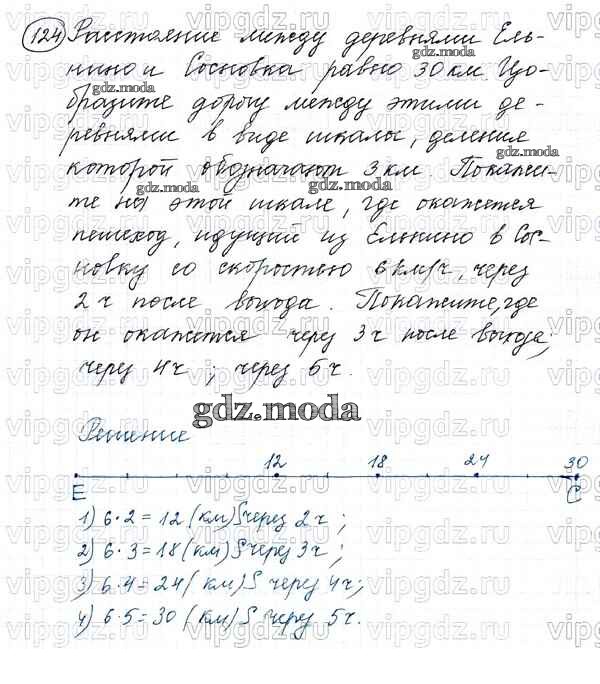 124 Расстояние между деревнями Ель-
нино и Сосновка равно 30 км. Изо-
бразите дорогу между этими де-
ревнями в виде шкалы, деления
которой обозначают 3 км. Покажи-
те на этой шкале, где окажется
пешеход, идущий из Ельнино в Сос-
новку со скоростью 6 км/ч, через
2 ч после выхода. Покажите, где
он окажется через 3 ч после выхода;
через 4 ч ; через 5 ч.
gdz.moda
Решение
12 18 24 30
Е С
1) 6·2 = 12 (км) S через 2 ч ;
2) 6·3 = 18 (км) S через 3 ч ;
3) 6·4 = 24 (км) S через 4 ч;
4) 6·5 = 30 (км) S через 5 ч.
vipgdz.ru